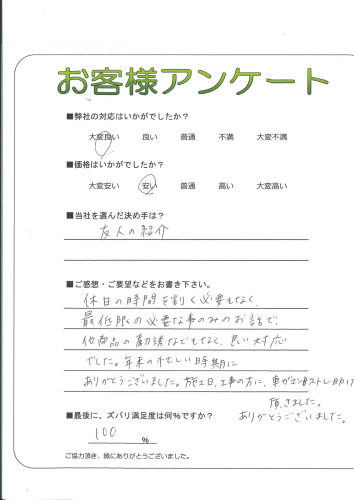 お客様アンケート
■弊社の対応はいかがでしたか？
大変良い 良い 普通 不満 大変不満
■価格はいかがでしたか？
大変安い 安い 普通 高い 大変高い
■当社を選んだ決め手は？
友人の紹介
■ご感想・ご要望などをお書き下さい。
休日の時間を割く必要もなく、
最低限の必要な事のみのお話で
他商品の勧誘などもなく、良い対応
でした。年末の忙しい時期に
ありがとうございました。施工日、工事の方に、車がエンスト 助けて
頂きました。
ありがとうございました。
■最後に、ズバリ満足度は何％ですか？
100 %
ご協力頂き、誠にありがとうございました。